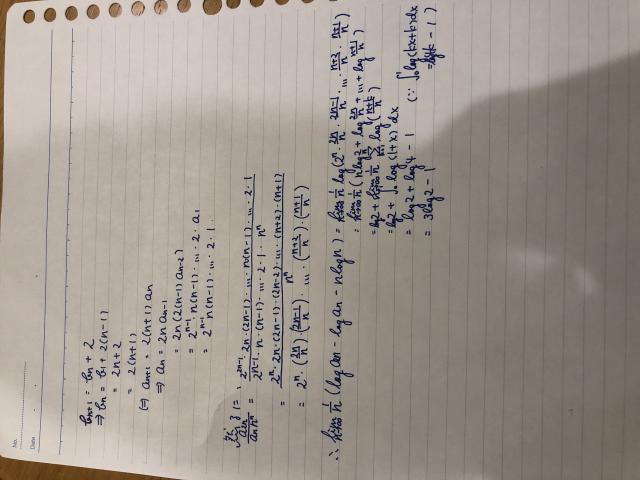 No.
Date
b_{n+1} = b_n + 2
⇒ b_n = b_1 + 2(n-1)
= 2n + 2
= 2(n+1)
(⇒) a_{n+1} = 2(n+1) a_n
⇒ a_n = 2n a_{n-1}
= 2n (2(n-1) a_{n-2})
= 2^{n-1} · n(n-1) · … · 2 · a_1
= 2^{n-1} n(n-1) · … · 2 · 1
\frac{a_{2n}}{a_n n^n} = \frac{2^{2n-1} · 2n · (2n-1) · … · n(n-1) · … · 2 · 1}{2^{n-1} · n · (n-1) · … · 2 · 1 · n^n}
= \frac{2^n · 2n · (2n-1) · (2n-2) · … · (n+2) · (n+1)}{n^n}
= 2^n · (\frac{2n}{n}) · (\frac{2n-1}{n}) · … · (\frac{n+2}{n}) · (\frac{n+1}{n})
∴ \lim_{n→∞} \frac{1}{n} (log a_{2n} - log a_n - n log n) = \lim_{n→∞} \frac{1}{n} log (2^n · \frac{2n}{n} · \frac{2n-1}{n} · … · \frac{n+2}{n} · \frac{n+1}{n})
= \lim_{n→∞} \frac{1}{n} (n log 2 + log \frac{2n}{n} + … + log \frac{n+1}{n})
= log 2 + \lim_{n→∞} \frac{1}{n} \sum_{k=1}^{n} log (\frac{n+k}{n})
= log 2 + ∫_0^1 log (1+x) dx
= log 2 + log 4 - 1
= 3 log 2 - 1